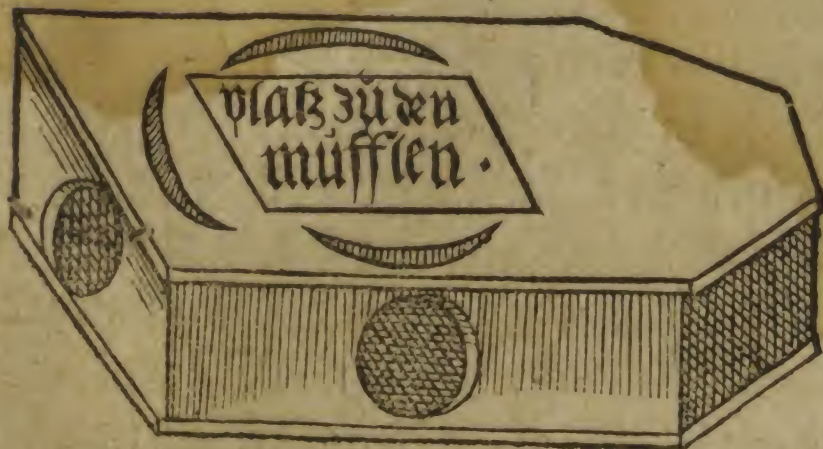 platz zů den
mufflen .